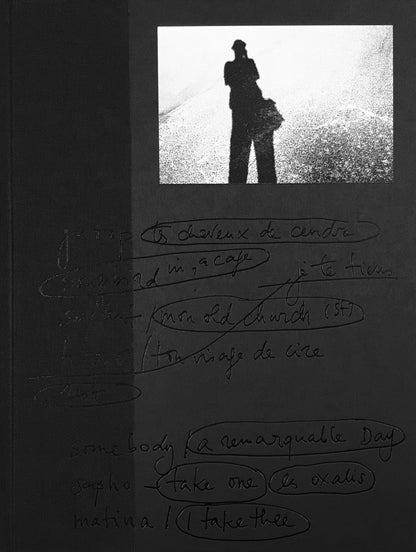 tes cheveux de cendre
in a cage
je te tiens
mon old church (st)
/ ton visage de cire
somebody / a remarquable Day
sapho - take one es oxalis
matina / I take thee